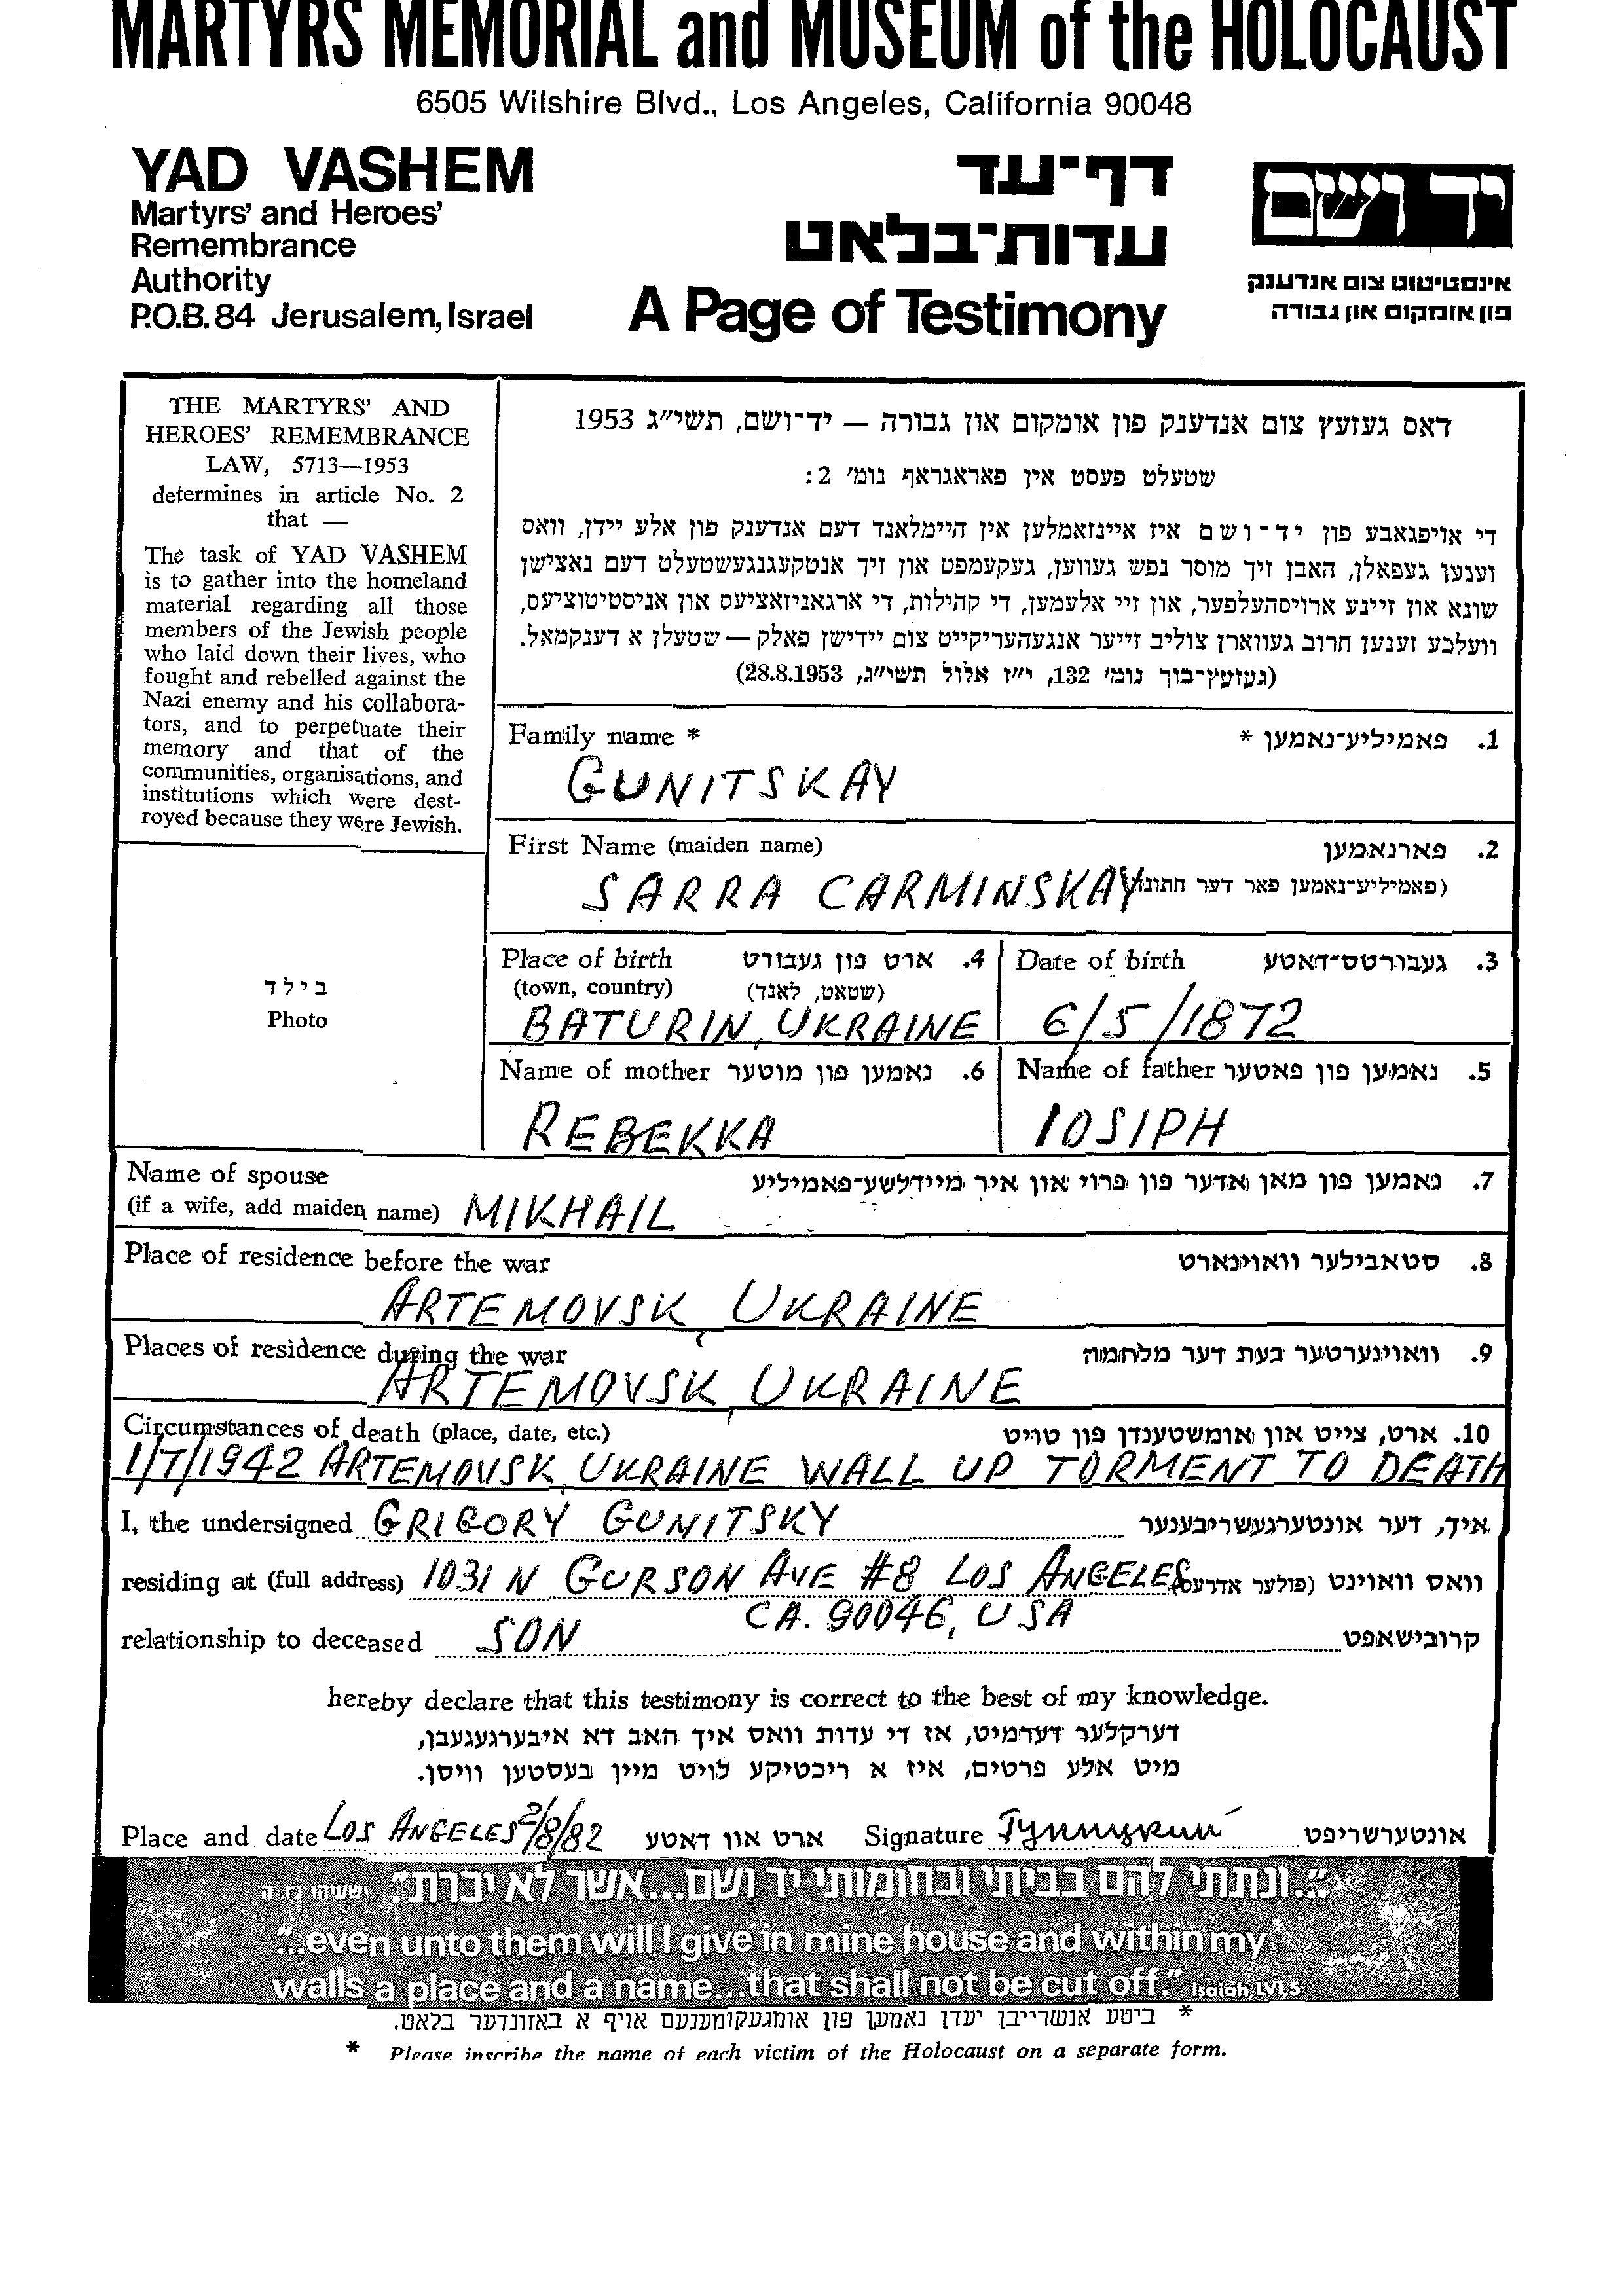 MARTYRS MEMORIAL and MUSEUM of the HOLOCAUST
6505 Wilshire Blvd., Los Angeles, California 90048
YAD VASHEM
Martyrs' and Heroes'
Remembrance
Authority
P.O.B. 84 Jerusalem, Israel
דף-עד
עדות-בלאט
A Page of Testimony
יד ושם
אינסטיטוט צום אנדענק
פון אומקום און גבורה
THE MARTYRS' AND
HEROES' REMEMBRANCE
LAW, 5713—1953
determines in article No. 2
that —
The task of YAD VASHEM
is to gather into the homeland
material regarding all those
members of the Jewish people
who laid down their lives, who
fought and rebelled against the
Nazi enemy and his collabora-
tors, and to perpetuate their
memory and that of the
communities, organisations, and
institutions which were dest-
royed because they were Jewish.
דאס געזעץ צום אנדענק פון אומקום און גבורה — יד-ושם, תשי״ג 1953
שטעלט פעסט אין פאראגראף נומ׳ 2:
די אויפגאבע פון יד-ושם איז איינזאמלען אין היימלאנד דעם אנדענק פון אלע יידן, וואס
זענען געפאלן, האבן זיך מוסר נפש געווען, געקעמפט און זיך אנטקעגנגעשטעלט דעם נאצישן
שונא און זיינע ארויסהעלפער, און זיי אלעמען, די קהילות, די ארגאניזאציעס און אניסטיטוציעס,
וועלכע זענען חרוב געווארן צוליב זייער אנגעהעריקייט צום יידישן פאלק — שטעלן א דענקמאל.
(געזעץ-בוך נומ׳ 132, י״ז אלול תשי״ג, 28.8.1953)
Family name * פאמיליע-נאמען * .1
GUNITSKAY
First Name (maiden name) פארנאמען .2
SARRA CARMINSKAY (פאמיליע-נאמען פאר דער
Place of birth ארט פון געבורט .4
(town, country) (שטאט, לאנד)
BATURIN, UKRAINE
Date of birth געבורטס-דאטע .3
6/5/1872
בילד
Photo
Name of mother נאמען פון מוטער .6
REBEKKA
Name of father נאמען פון פאטער .5
IOSIPH
Name of spouse נאמען פון מאן אדער פון פרוי און איר מיידלשע-פאמיליע .7
(if a wife, add maiden name) MIKHAIL
Place of residence before the war סטאבילער וואוינארט .8
ARTEMOVSK, UKRAINE
Places of residence during the war וואוינערטער בעת דער מלחמה .9
ARTEMOVSK, UKRAINE
Circumstances of death (place, date, etc.) ארט, צייט און אומשטענדן פון טויט .10
1/7/1942 ARTEMOVSK, UKRAINE WALL UP TORMENT TO DEATH
I, the undersigned GRIGORY GUNITSKY איך, דער אונטערגעשריבענער
residing at (full address) 1031 N GURSON AVE #8 LOS ANGELES וואס וואוינט (פולער אדרעס)
CA. 90046, USA
relationship to deceased SON קרובישאפט
hereby declare that this testimony is correct to the best of my knowledge.
דערקלער דערמיט, אז די עדות וואס איך האב דא איבערגעגעבן,
מיט אלע פרטים, איז א ריכטיקע לויט מיין בעסטען וויסן.
Place and date LOS ANGELES 2/8/82 ארט און דאטע Signature Гуницкий אונטערשריפט
"...ונתתי להם בביתי ובחומותי יד ושם...אשר לא יכרת" ישעיהו נו ה
"...even unto them will I give in mine house and within my
walls a place and a name...that shall not be cut off." Isaiah, LVI, 5
* ביטע אנשרייבן יעדן נאמען פון אומגעקומענעם אויף א באזונדער בלאט.
* Please inscribe the name of each victim of the Holocaust on a separate form.